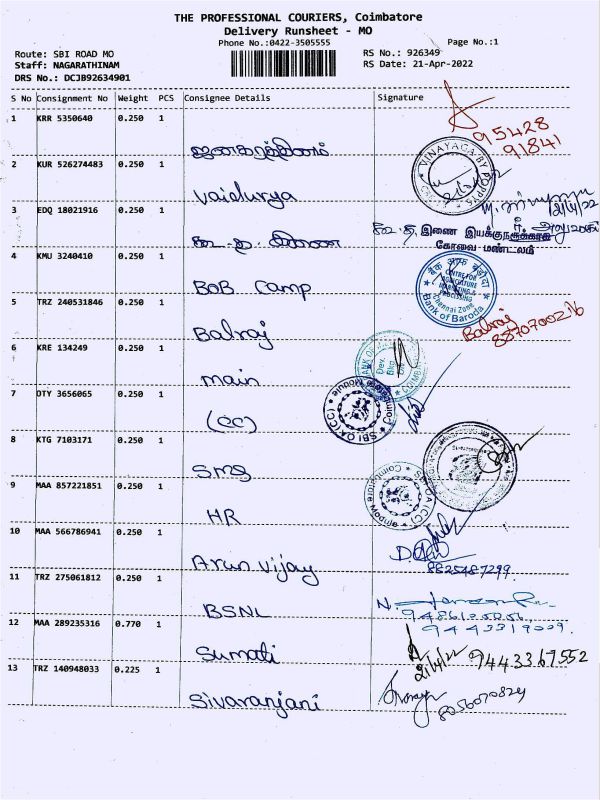 THE PROFESSIONAL COURIERS, Coimbatore
Delivery Runsheet - MO
Phone No.:0422-3505555
Page No.:1
Route: SBI ROAD MO
RS No.: 926349
Staff: NAGARATHINAM
RS Date: 21-Apr-2022
DRS No.: DCJB92634901
S No Consignment No Weight PCS Consignee Details Signature
1 KRR 5350640 0.250 1
95428
91841
2 KUR 526274483 0.250 1 Vaidurya
VINAYAGA
21/4/22
3 EDQ 18021916 0.250 1
இணை இயக்குநருக்காக
கோவை மண்டலம்
4 KMU 3240410 0.250 1 BOB Camp
बैंक ऑफ़ बड़ौदा
CENTRE FOR
AGRICULTURE
MARKETING &
PROCESSING
Chennai Zone
Bank of Baroda
5 TRZ 240531846 0.250 1 Balraj
Balraj
8870700216
6 KRE 134249 0.250 1 main
7 OTY 3656065 0.250 1 (CC)
SBI OA(CC) Coimbatore Module
8 KTG 7103171 0.250 1 SMS
9 MAA 857221851 0.250 1 HR
Coimbatore Module
10 MAA 566786941 0.250 1 Arun Vijay
8825487299
11 TRZ 275061812 0.250 1 BSNL
12 MAA 289235316 0.770 1 Sumati
21/4/22 9443367552
13 TRZ 140948033 0.225 1 Sivaranjani
8056070824